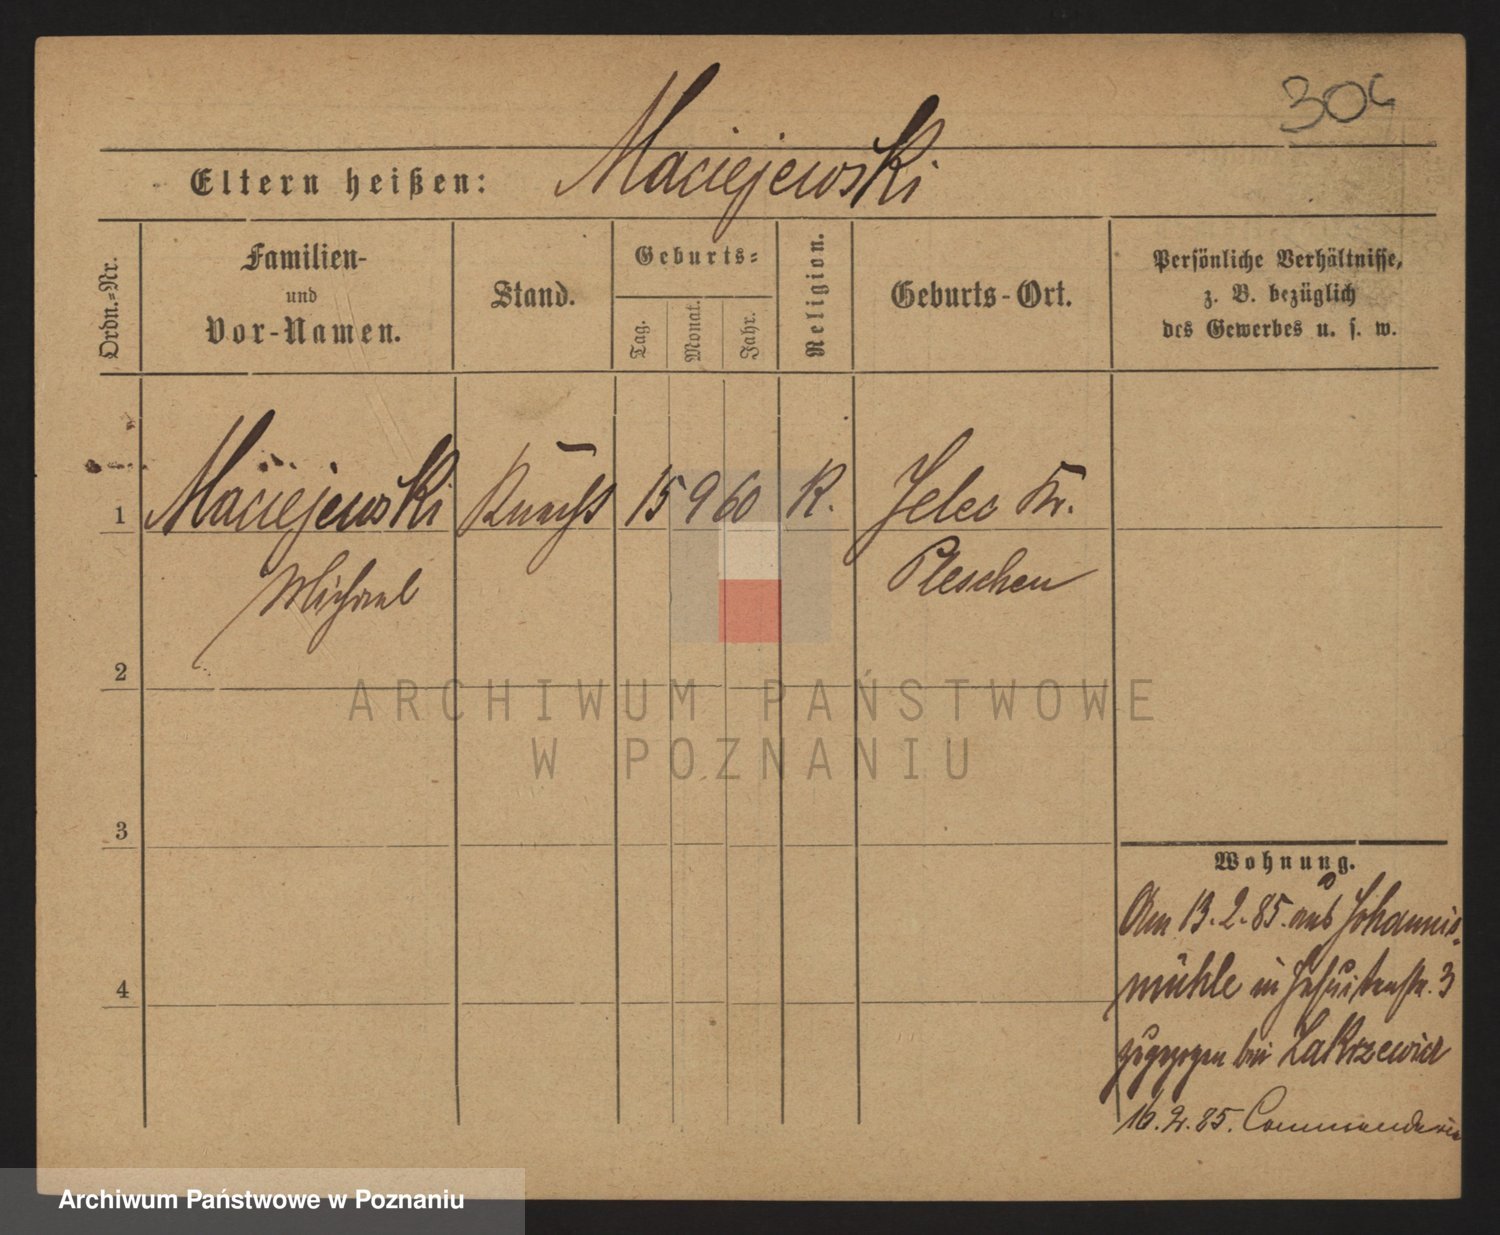 304
Maciejewski
Eltern heißen:
Ordn.=Nr.
Familien-
und
Vor-Namen.
Stand.
Geburts=
Tag.
Monat.
Jahr.
Religion.
Geburts-Ort.
Persönliche Verhältnisse,
z. B. bezüglich
des Gewerbes u. s. w.
1 Maciejewski Knecht 15 9 60 R. Jelec Kr.
Michael Pleschen
2
3
4
Wohnung.
Am 13.2.85. aus Johannis-
mühle in Jesuitenstr. 3
zugezogen bei Zakrzewicz
16.2.85. Commenderie
ARCHIWUM PAŃSTWOWE
W POZNANIU
Archiwum Państwowe w Poznaniu